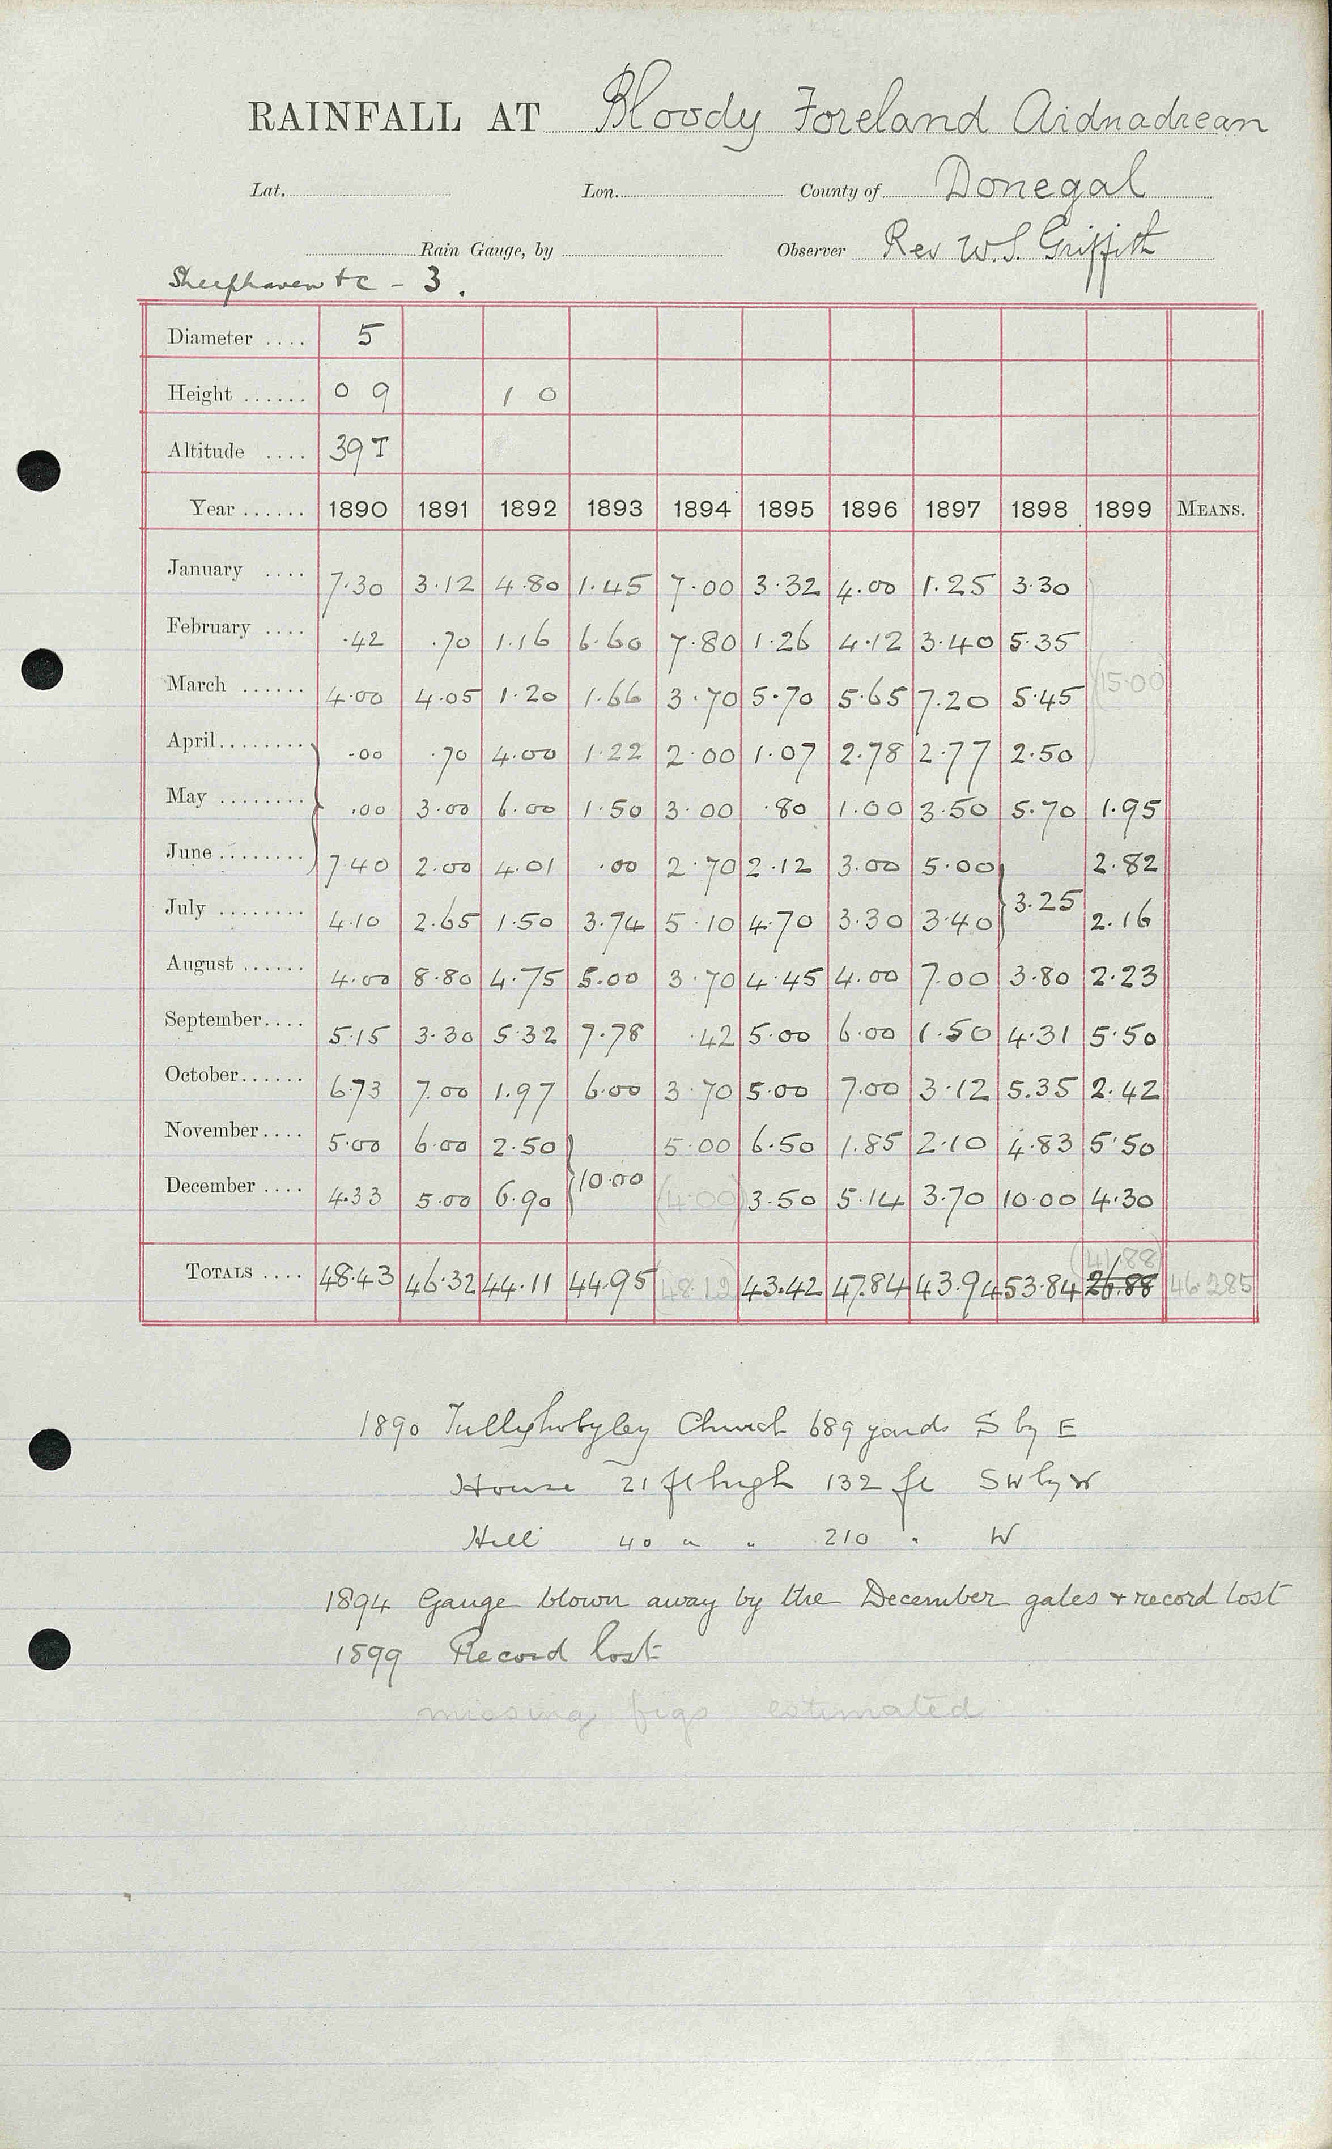 RAINFALL AT Bloody Foreland Aidnadrean
Lat. Lon. County of Donegal
Rain Gauge, by Observer Rev W.S. Griffith
Sheephaven &c - 3.
Diameter .... 5
Height ...... 0 9 1 0
Altitude .... 39 T
Year ...... 1890 1891 1892 1893 1894 1895 1896 1897 1898 1899 MEANS.
January .... 7.30 3.12 4.80 1.45 7.00 3.32 4.00 1.25 3.30
February .... .42 .70 1.16 6.60 7.80 1.26 4.12 3.40 5.35
March ...... 4.00 4.05 1.20 1.66 3.70 5.70 5.65 7.20 5.45 (15.00)
April........ .00 .70 4.00 1.22 2.00 1.07 2.78 2.77 2.50
May ........ .00 3.00 6.00 1.50 3.00 .80 1.00 3.50 5.70 1.95
June ........ 7.40 2.00 4.01 .00 2.70 2.12 3.00 5.00 2.82
July ........ 4.10 2.65 1.50 3.74 5.10 4.70 3.30 3.40 3.25 2.16
August ...... 4.00 8.80 4.75 5.00 3.70 4.45 4.00 7.00 3.80 2.23
September.... 5.15 3.30 5.32 7.78 .42 5.00 6.00 1.50 4.31 5.50
October...... 6.73 7.00 1.97 6.00 3.70 5.00 7.00 3.12 5.35 2.42
November.... 5.00 6.00 2.50 5.00 6.50 1.85 2.10 4.83 5.50
December .... 4.33 5.00 6.90 10.00 (4.00) 3.50 5.14 3.70 10.00 4.30
(41.88)
TOTALS .... 48.43 46.32 44.11 44.95 (48.12) 43.42 47.84 43.94 53.84 26.88 46.285
1890 Church 689 yards S by E
House 21 ft high 132 ft SW by W
Hill 40 " " 210 " W
1894 Gauge blown away by the December gales & record lost
1899 Record lost
missing figs estimated